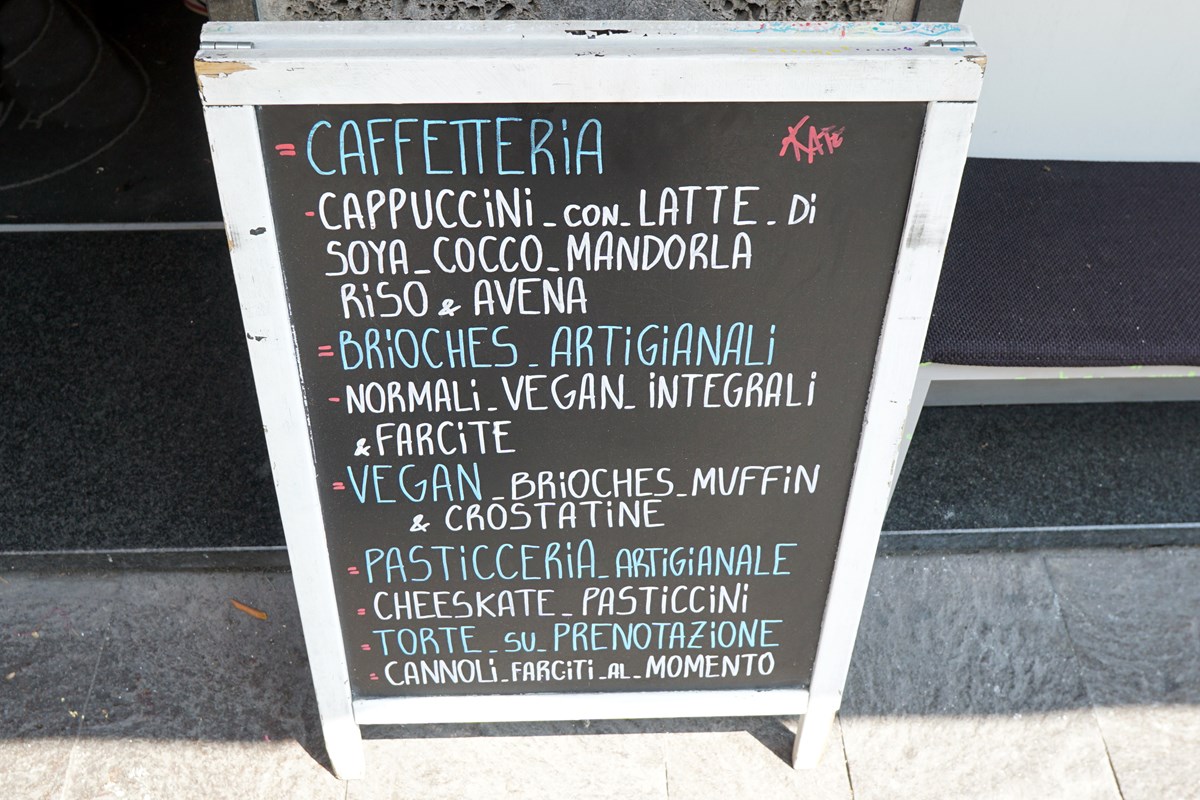 = CAFFETTERiA KATE
- CAPPUCCiNi _ CON _ LATTE _ Di
SOYA _ COCCO _ MANDORLA
RiSO & AVENA
= BRiOCHES _ ARTiGiANALi
- NORMALi _ VEGAN _ iNTEGRALi
& FARCiTE
= VEGAN _ BRiOCHES _ MUFFiN
& CROSTATiNE
= PASTiCCERiA _ ARTiGiANALE
= CHEESKATE _ PASTiCCiNi
= TORTE _ SU _ PRENOTAZiONE
= CANNOLi _ FARCiTi _ AL _ MOMENTO